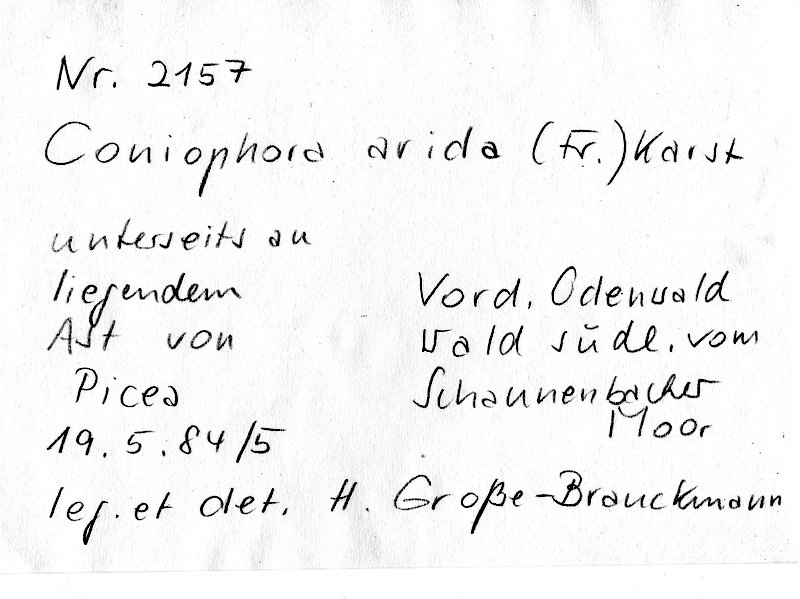 Nr. 2157
Coniophora arida (Fr.) Karst
unterseits an
liegendem
Ast von
Picea
19.5.84/5
Vord. Odenwald
Wald südl. vom
Schannenbacher
Moor
leg. et det. H. Große-Brauckmann